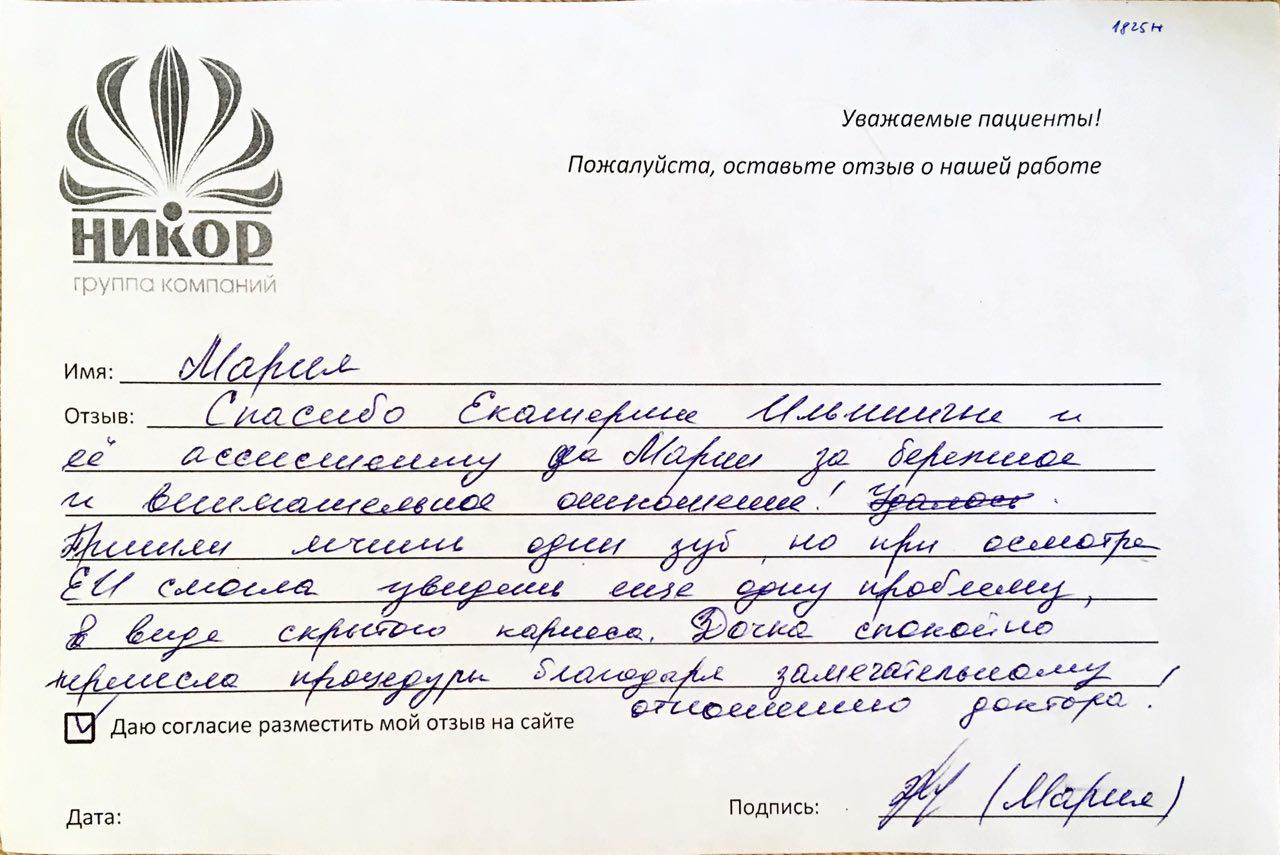 1825н
НИКОР
группа компаний
Уважаемые пациенты!
Пожалуйста, оставьте отзыв о нашей работе
Имя: Мария
Отзыв: Спасибо Екатерине Ильиничне и
её ассистенту Марии за бережное
и внимательное отношение! Удалось
Пришли лечить один зуб, но при осмотре
ЕИ смогла увидеть еще одну проблему,
в виде скрытого кариеса. Дочка спокойно
перенесла процедуры благодаря замечательному
отношению доктора!
Даю согласие разместить мой отзыв на сайте
Дата:
Подпись: (Мария)